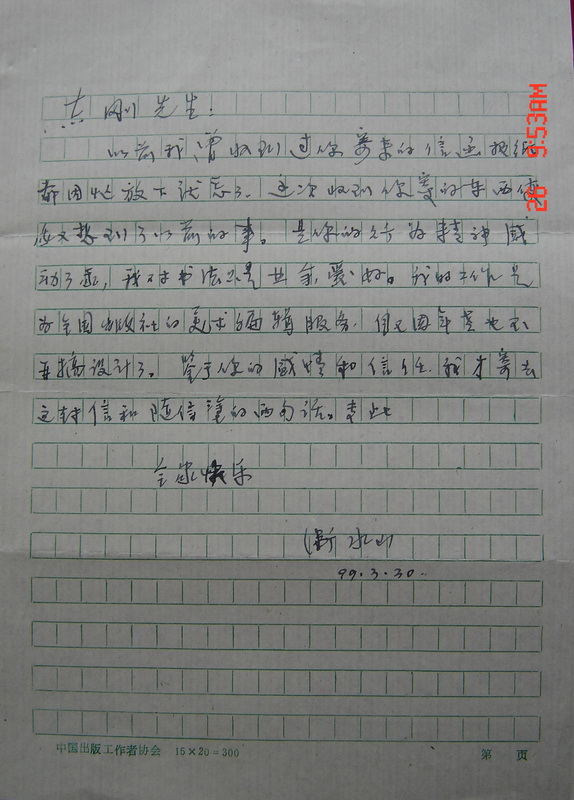 志刚先生:
以前我曾收到过你寄来的信函把纸
都因忙放下就忘了。这次收到你寄的东西使
我又想到了以前的事。是你的行为精神感
动了我,我对书法只是业余爱好。我的工作是
为全国出版社的美术编辑服务。但又因年老也不
再搞设计了。鉴于你的感情和信任,我才寄去
这封信和随信写的两句话。专此
全家快乐
水山
99.3.30.
中国出版工作者协会 15×20=300
第 页
26 9:53AM